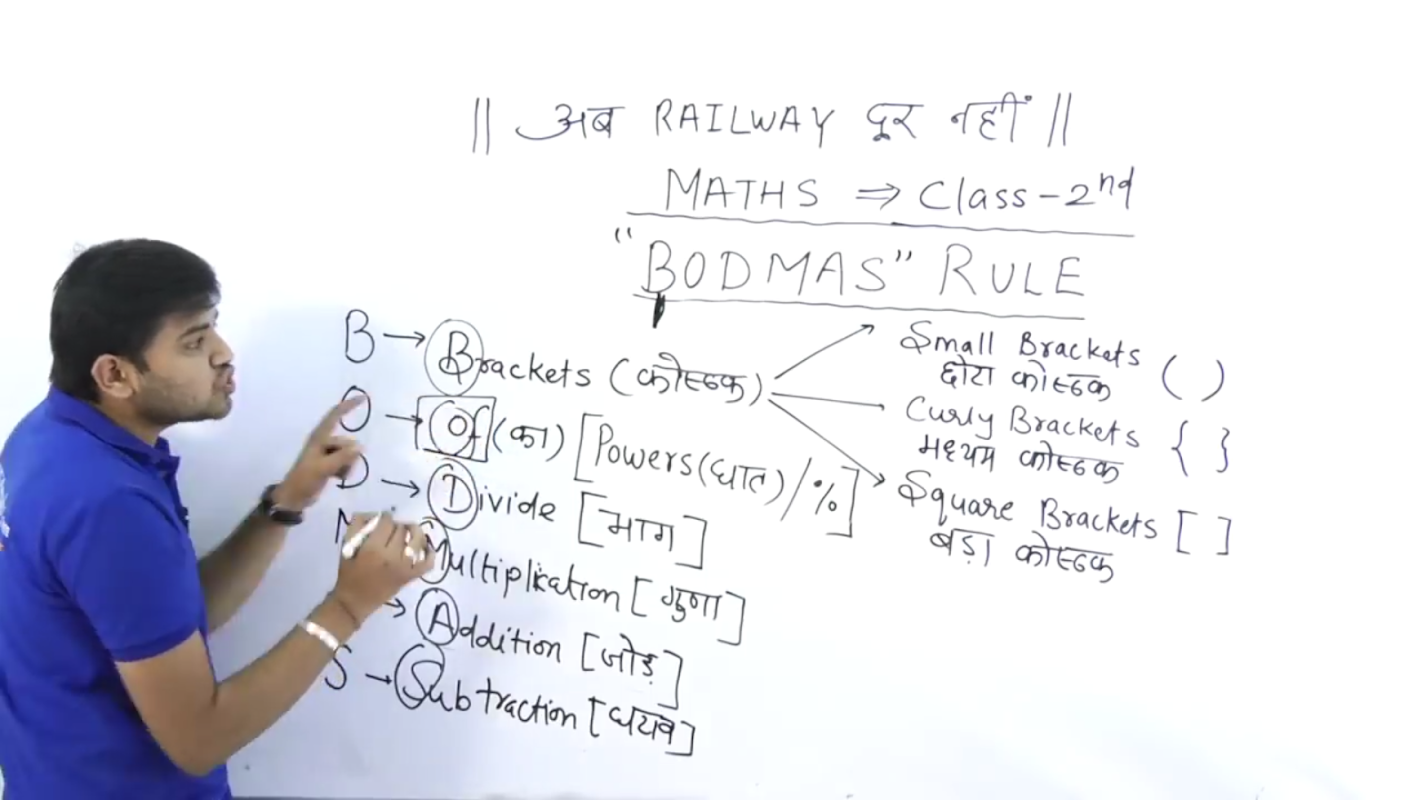 || अब RAILWAY दूर नहीं ||
MATHS ⇒ Class-2nd
"BODMAS" RULE
B → Brackets (कोष्ठक)
Small Brackets ( )
छोटा कोष्ठक
Curly Brackets { }
मध्यम कोष्ठक
Square Brackets [ ]
बड़ा कोष्ठक
O → Of (का) [Powers(घात)/%]
D → Divide [भाग]
M Multiplication [गुणा]
→ Addition [जोड़]
S → Subtraction [घटाव]